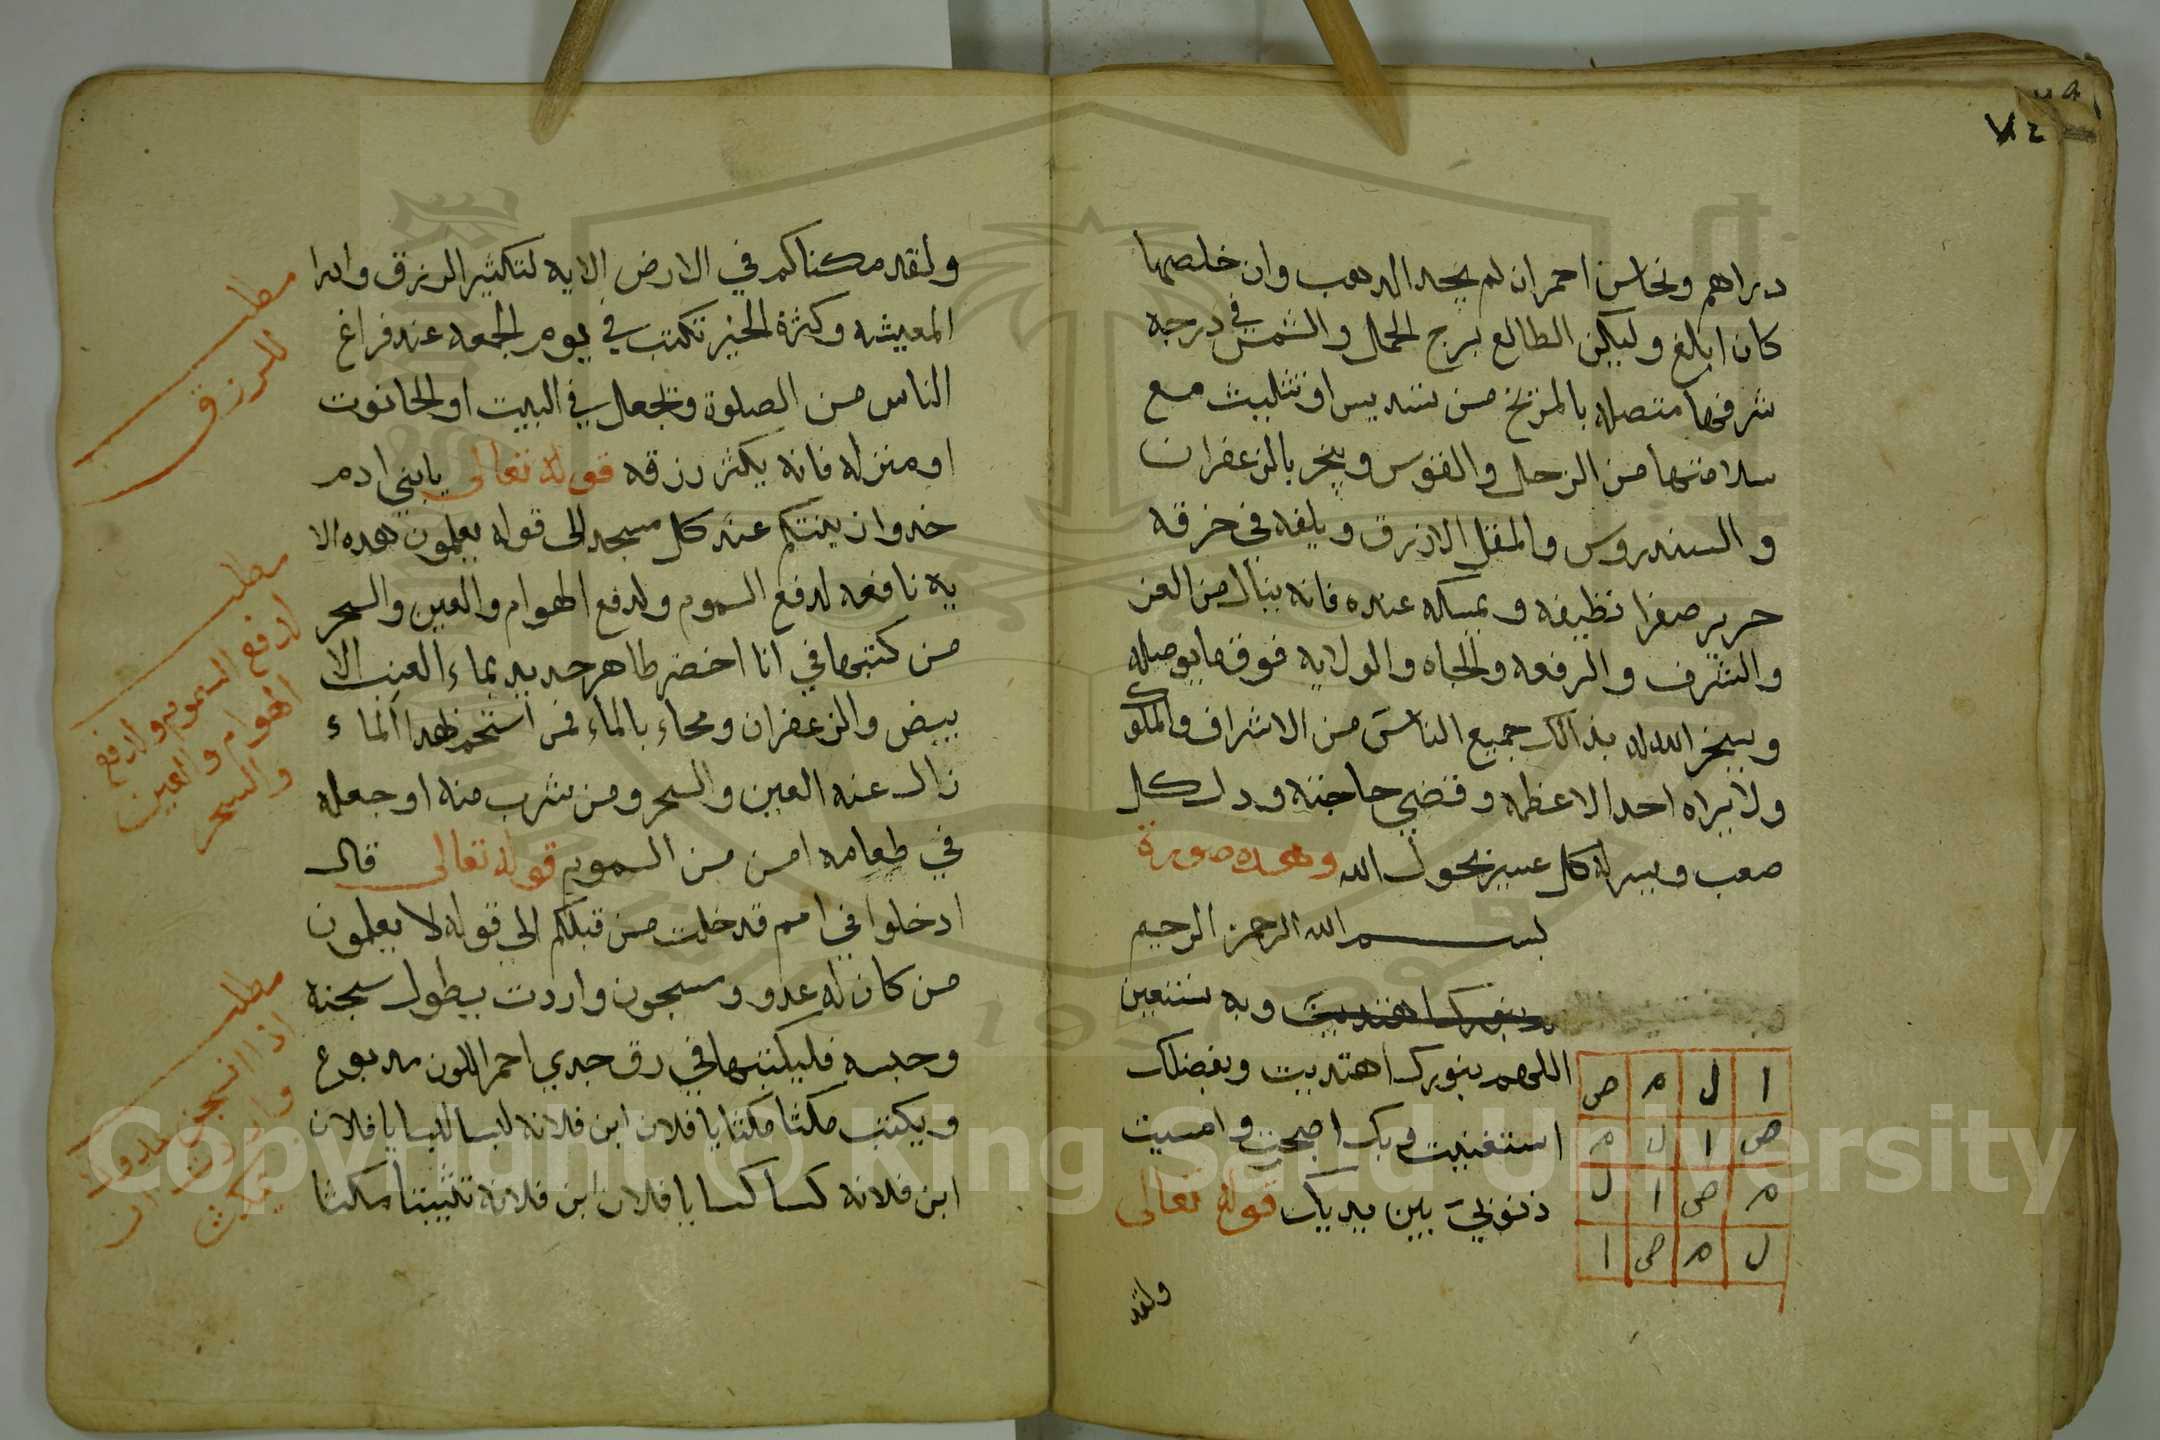 دراهم ونحاس احمر ان لم يجد الذهب وان خلصها
كان ابلغ وليكن الطالع برج الحمل والشمس في درجه
شرفها متصله بالمريخ من تسديس او تثليث مع
سلامتها من الزحل والقوس ويبخر بالزعفران
والسندروس والمقل الازرق ويلفه في خرقه
حرير صفرا نظيفه ويمسكه عنده فانه ينال من العز
والشرف والرفعه والجاه والولايه فوق ما يوصله
ويسخر الله له بذالك جميع الناس من الاشراف والملوك
ولا يراه احد الا عظمه وقضي حاجته وذل كل
صعب ويسر له كل عسير بحول الله وهذه صورة
بسم الله الرحمن الرحيم
بنورك اهتديت وبه نستعين
اللهم بنورك اهتديت وبفضلك
استغنيت وبك اصبحت وامسيت
ذنوبي بين يديك قوله تعالى
ا ل م ص
ص ا ل م
م ص ا ل
ل م ص ا
ولقد
ولقد مكناكم في الارض الايه لتكثير الرزق وادرا
المعيشه وكثرة الخير تكتب في يوم الجمعه عند فراغ
الناس من الصلوة وتجعل في البيت او الحانوت
او منزله فانه يكثر رزقه قوله تعالى يا بني ادم
خذوا زينتكم عند كل مسجد الى قوله يعلمون هذه الا
يه نافعه لدفع السموم ولدفع الهوام والعين والسحر
من كتبها في انا اخضر طاهر جديد بماء العنب الا
بيض والزعفران ومحاء بالماء فمن استحم بهذا الماء
زال عنه العين والسحر ومن شرب منه او جعله
في طعامه امن من السموم قوله تعالى قال
ادخلوا في امم قد خلت من قبلكم الى قوله لا يعلمون
من كان له عدو ومسجون واردت يطول سجنه
وحبسه فليكتبها في رق جدي احمر اللون مدبوغ
ويكتب مكثا مكثا يا فلان ابن فلانه لبسا لبسا يا فلان
ابن فلانه كسا كسا يا فلان ابن فلانة تثبيتا مكثا
مطلب
للرزق
مطلب
لدفع السموم ولدفع
الهوام والعين
والسحر
مطلب
اذا انسجن عدوك
واردت ان
يمكث